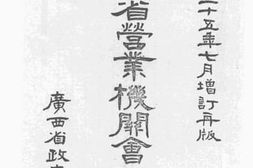 二十五年七月增訂再版
省營業機關會
廣西省政